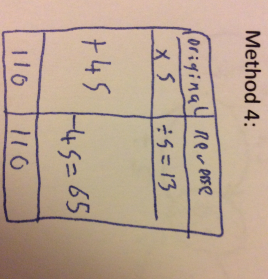 Method 4:
Original Reverse
x 5 ÷5=13
+45 -45=65
110 110